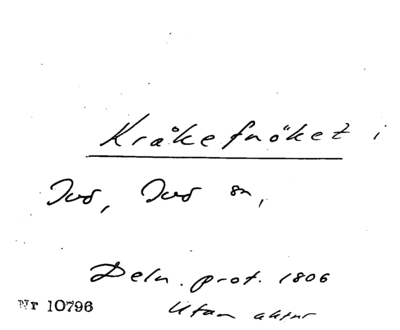 Kråkefnöket i
Ivö, Ivö sn,
Deln. prot. 1806
Nr 10796 Utan aktnr